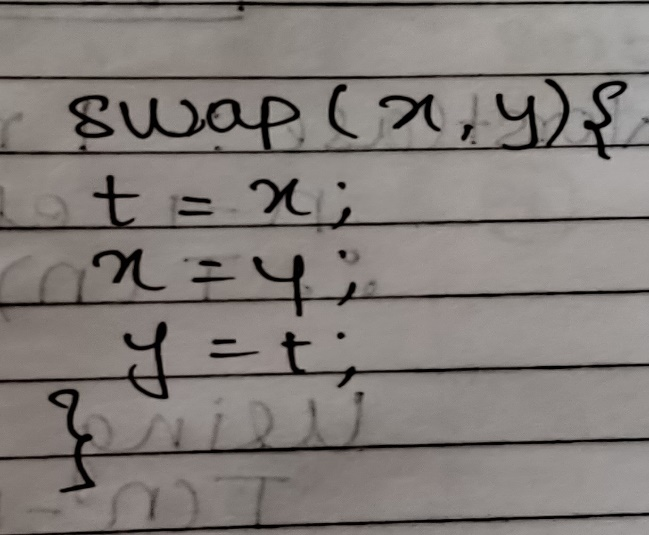 swap(x,y){
t = x;
x = y;
y = t;
}